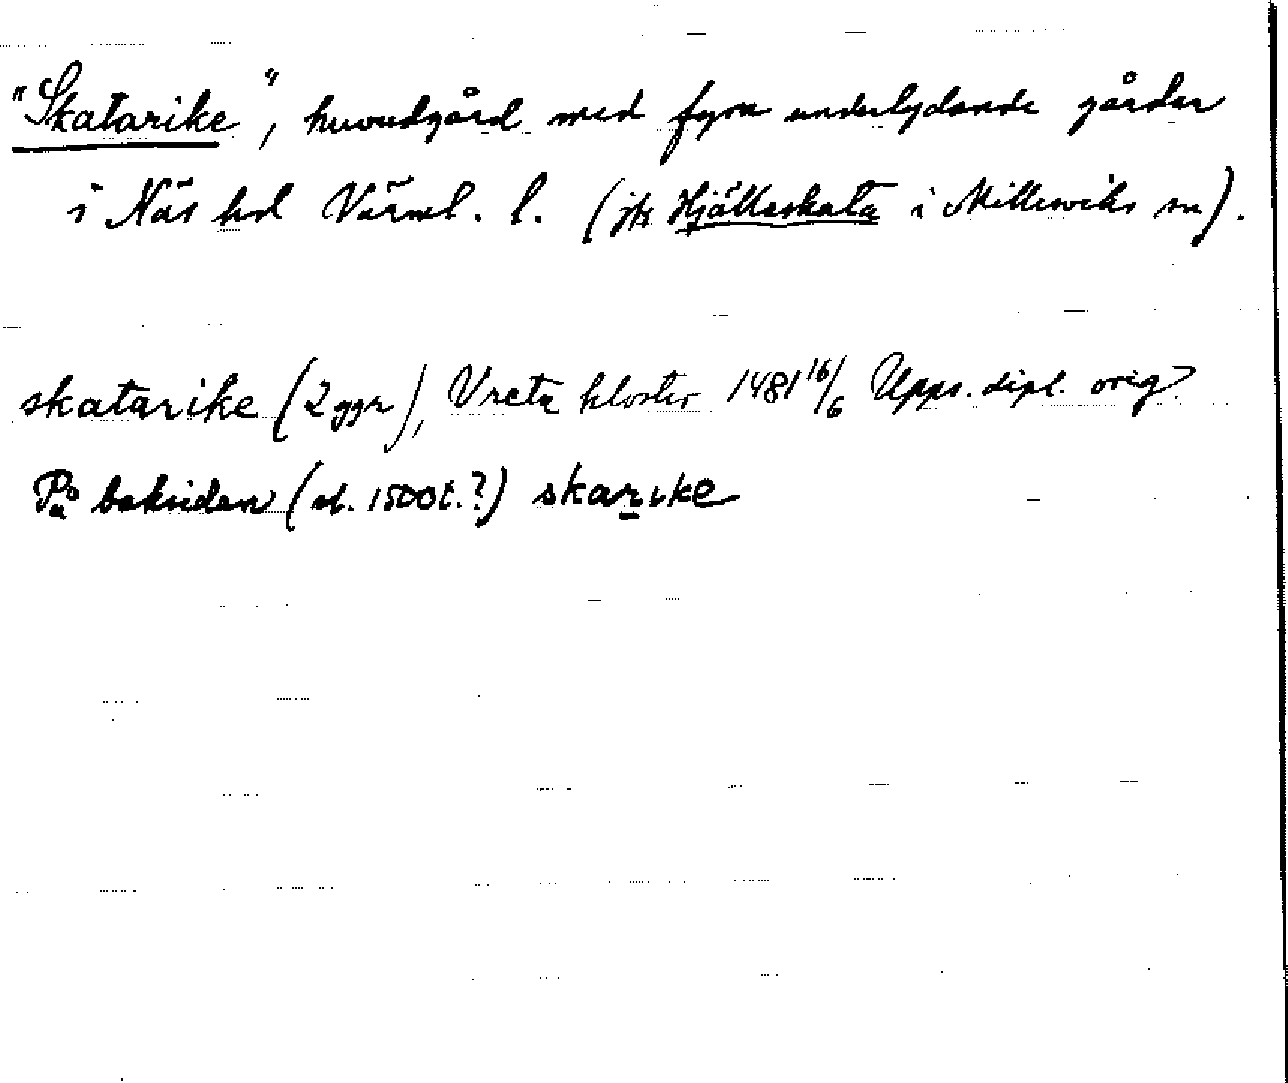 "Skatarike", huvudgård med fyra underlydande gårdar
i Näs hd Värml. l. (jfr Hjälleskata i Millesviks sn).
skatarike (2 ggr), Vreta kloster 1481 16/6 Upps. dipl. orig.
På baksidan (sl. 1500t.?) skarike